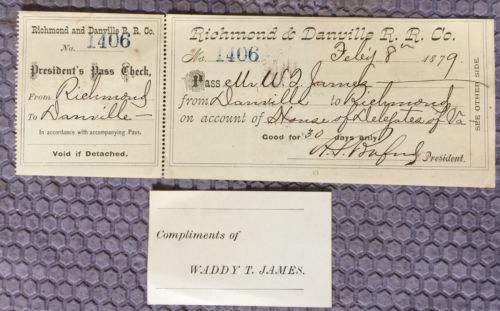 Richmond and Danville R. R. Co.
No. 1406
President's Pass Check,
From Richmond
To Danville
In accordance with accompanying Pass.
Void if Detached.
Richmond & Danville R. R. Co.
No. 1406 Feby 8th 1879.
Pass Mr W. T. James
from Danville to Richmond
on account of House of Delegates of Va
Good for 30 days only.
A. S. Buford
President.
SEE OTHER SIDE.
Compliments of
WADDY T. JAMES.